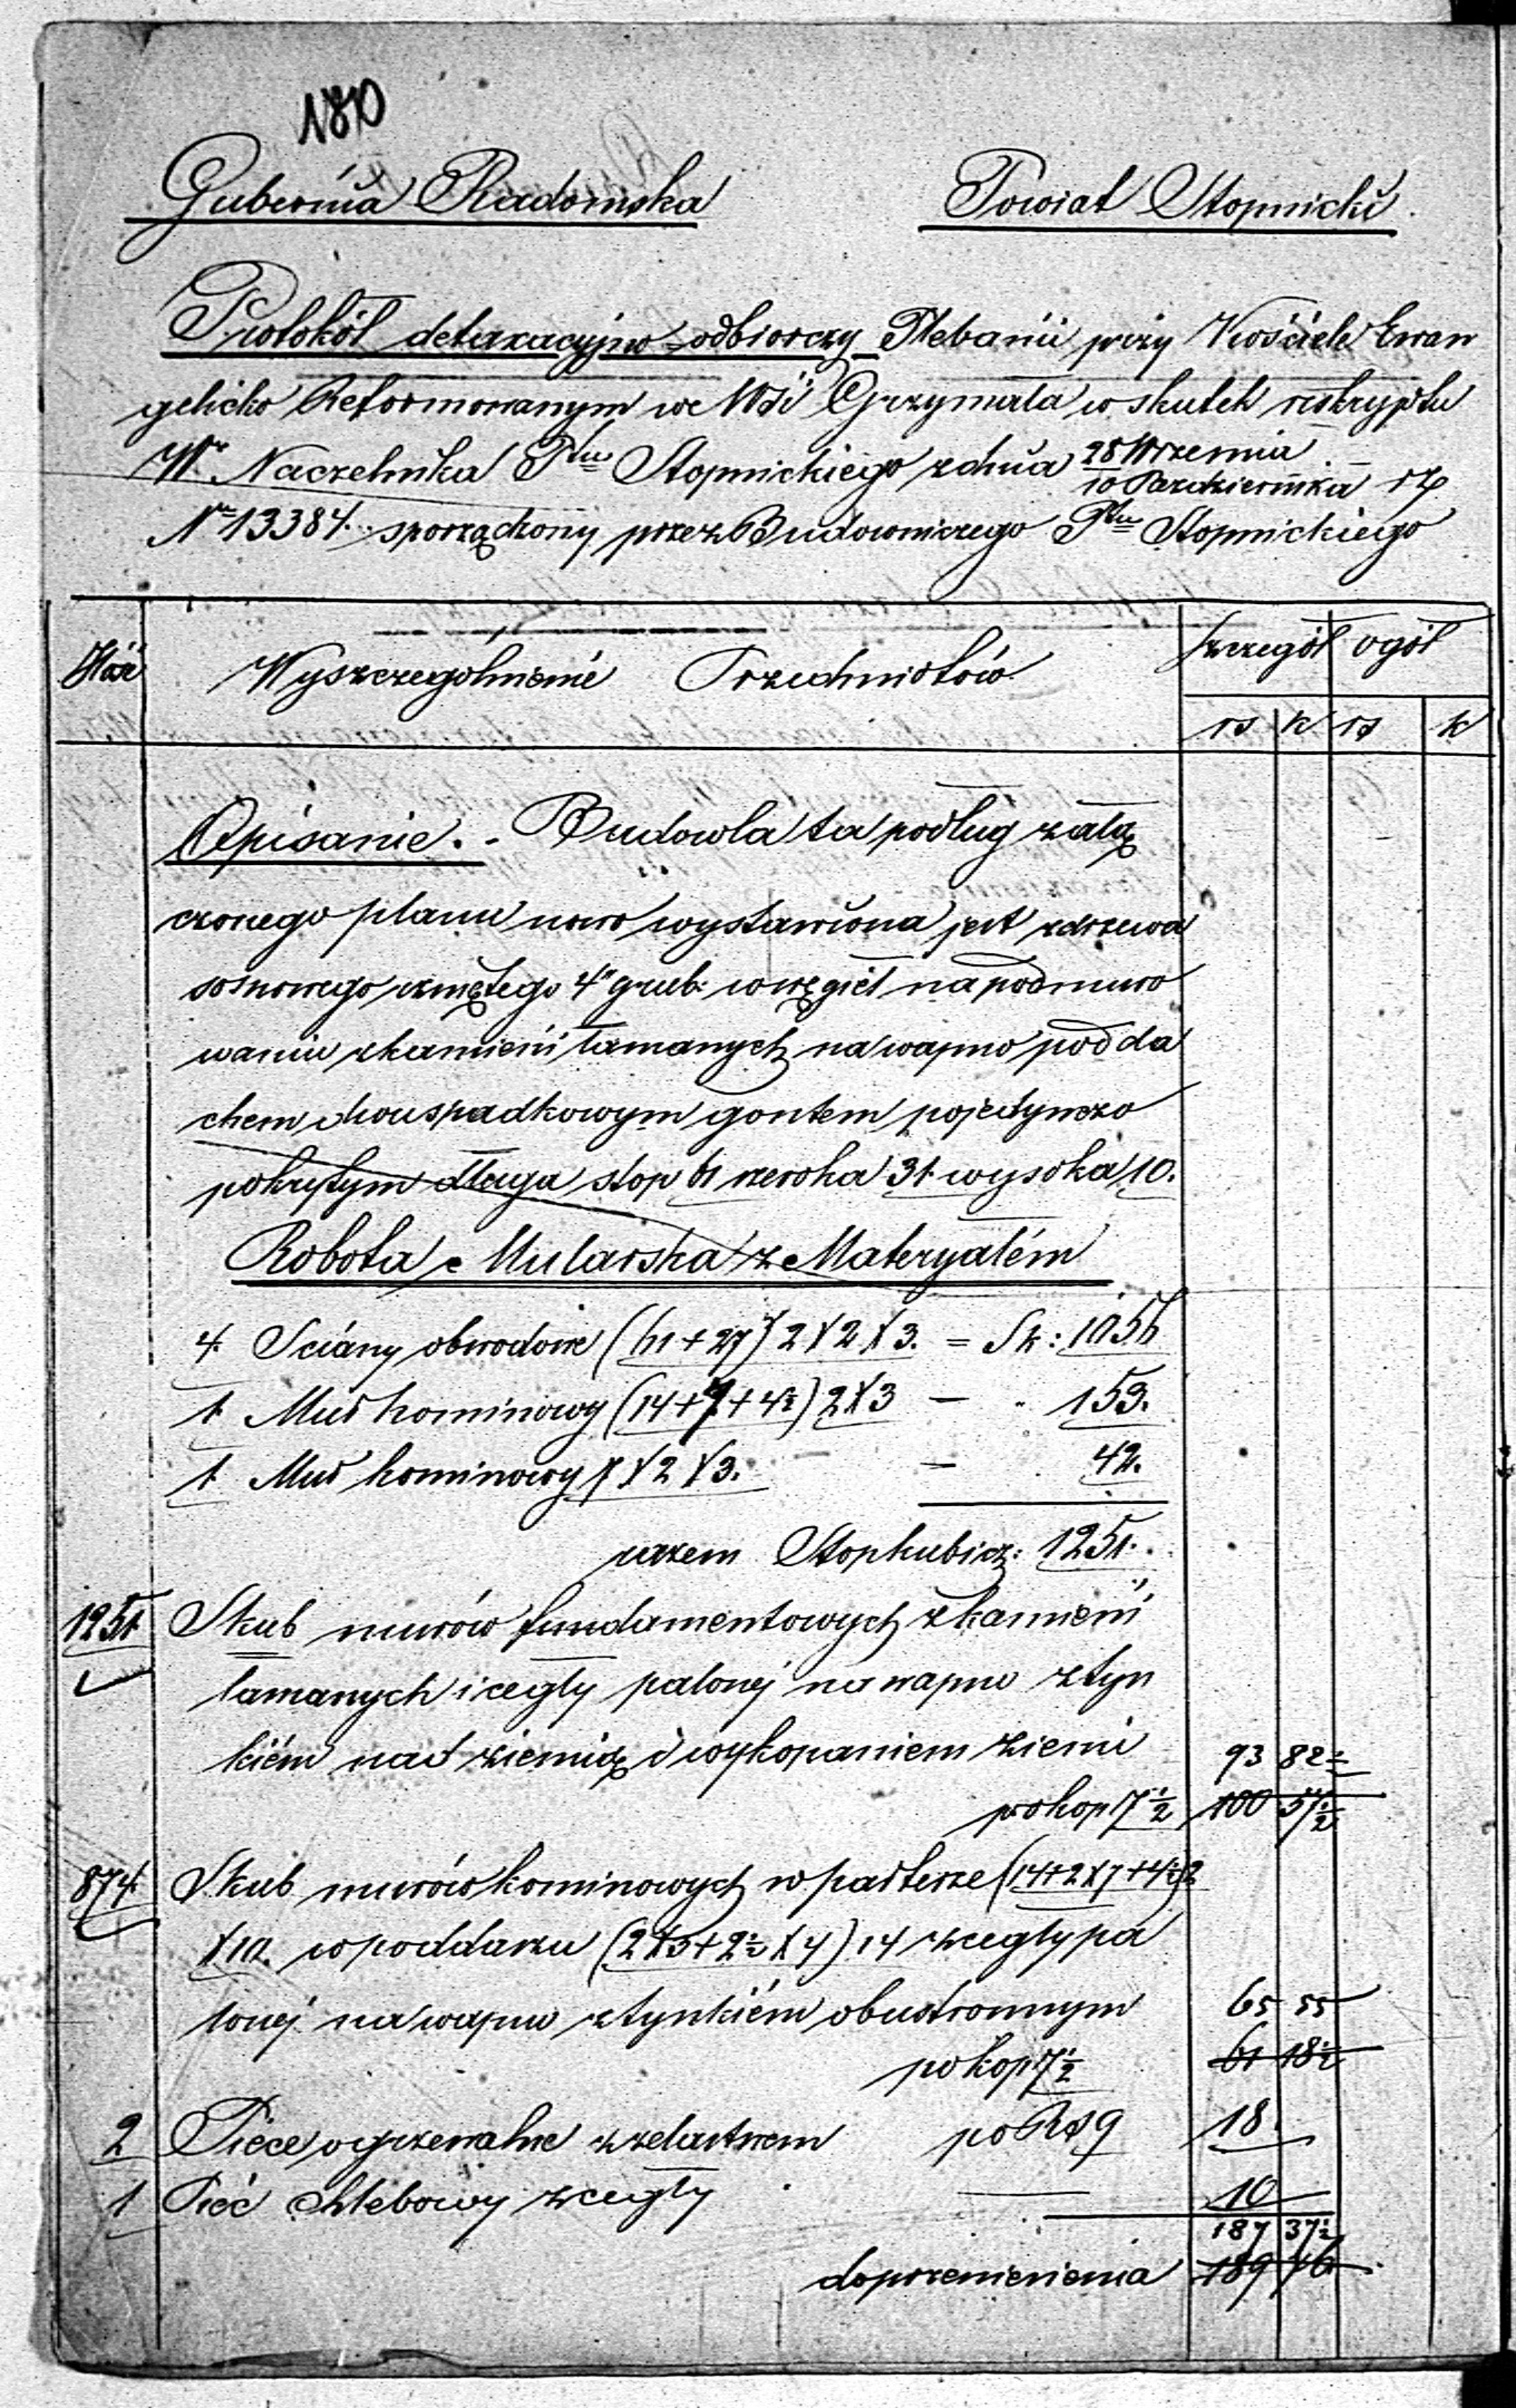 180
Gubernia Radomska Powiat Stopnicki.
Protokół detaxacyjno-odbiorczy Plebanii przy Kościele Ewan
gelicko Reformowanym we Wsi Grzymała w skutek reskryptu
Wº Naczelnika Ptu Stopnickiego z dnia 28 Wrzesnia / 10 Pazdziernika
Nr 13384. sporządzony przez Budowniczego Ptu Stopnickiego
Ilość Wyszczególnienié Przedmiotów szczegół ogół
rs k rs k
Opisanie. - Budowla ta podług załą
czonego planu nowo wystawiona jest z drzewa
sosnowego rzniętego 4" grub: w węgieł na podmuro
waniu z kamieni łamanych na wapno pod da
chem dwuspadkowym gontem pojedynczo
pokrytym długa stop 61 szeroka 31 wysoka 10.
Robota Mularska z Materyałém
4. Sciany obwodowe (61+27) 2 X 2 X 3. = St: 1056
1. Mur kominowy (14+7+4½) 2X3 — " 153.
1. Mur kominowy 7 X 2 X 3. — 42.
razem Stop kubicz: 1251.
1251 S kub murów fundamentowych z kamieni
łamanych i cegły palonej na wapno z tyn
kiém nad ziemią i wykopaniem ziemi 93 82½
po kop 7½ 100 57½
874. S kub murów kominowych w parterze (14+2X7+4½)2
X10. w poddaszu (2X5+2½X4) 14 z cegły pa
lonej na wapno z tynkiém obustronnym 65 55
po kop 7½ 61 18½
2 Piece ogrzewalne z żelastwem po Rs 9 18.
1 Piéc chlebowy z cegły — 10
187 37½
do przeniesienia 189 76